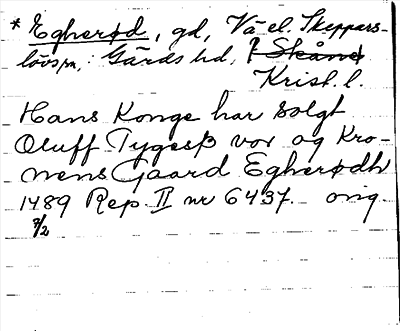 * Egherød, gd, Vä el. Skeppars-
lövs sn, Gärds hd, Skåne
Krist. l.
Hans Konge har solgt
Oluff Tygesß vor og Kro-
nens Gaard Egherødh
1489 Rep. II nr 6437. orig.
7/2